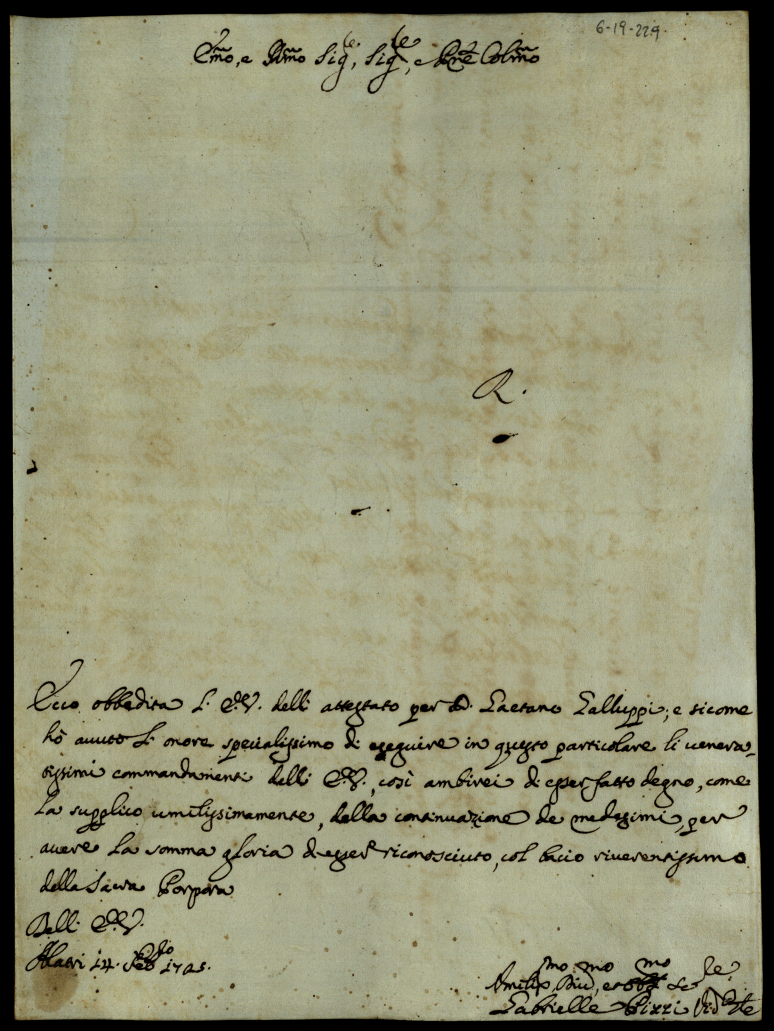 6-19-229.
Emo, e Rmo Sig.re, Sig.re, e Prne Colmo
R.
Ecco obbedita l'. E.V. dell' attestato per D. Gaetano Galluppi; e sicome
hò avuto l'. onore specialissimo di eseguire in questo particolare li venera-
tissimi commandamenti dell'. E.V., così ambirei di esser fatto degno, come
La supplico umilissimamente, della continuazione de medesimi, per
avere La somma gloria di esser riconosciuto, col bacio riverentissimo
della Sacra Porpora
Dell'. E.V.
Alatri 14. Febb.o 1725.
Umilis.mo Div.mo, et Obb.mo Se.re
Gabrielle Pizzi